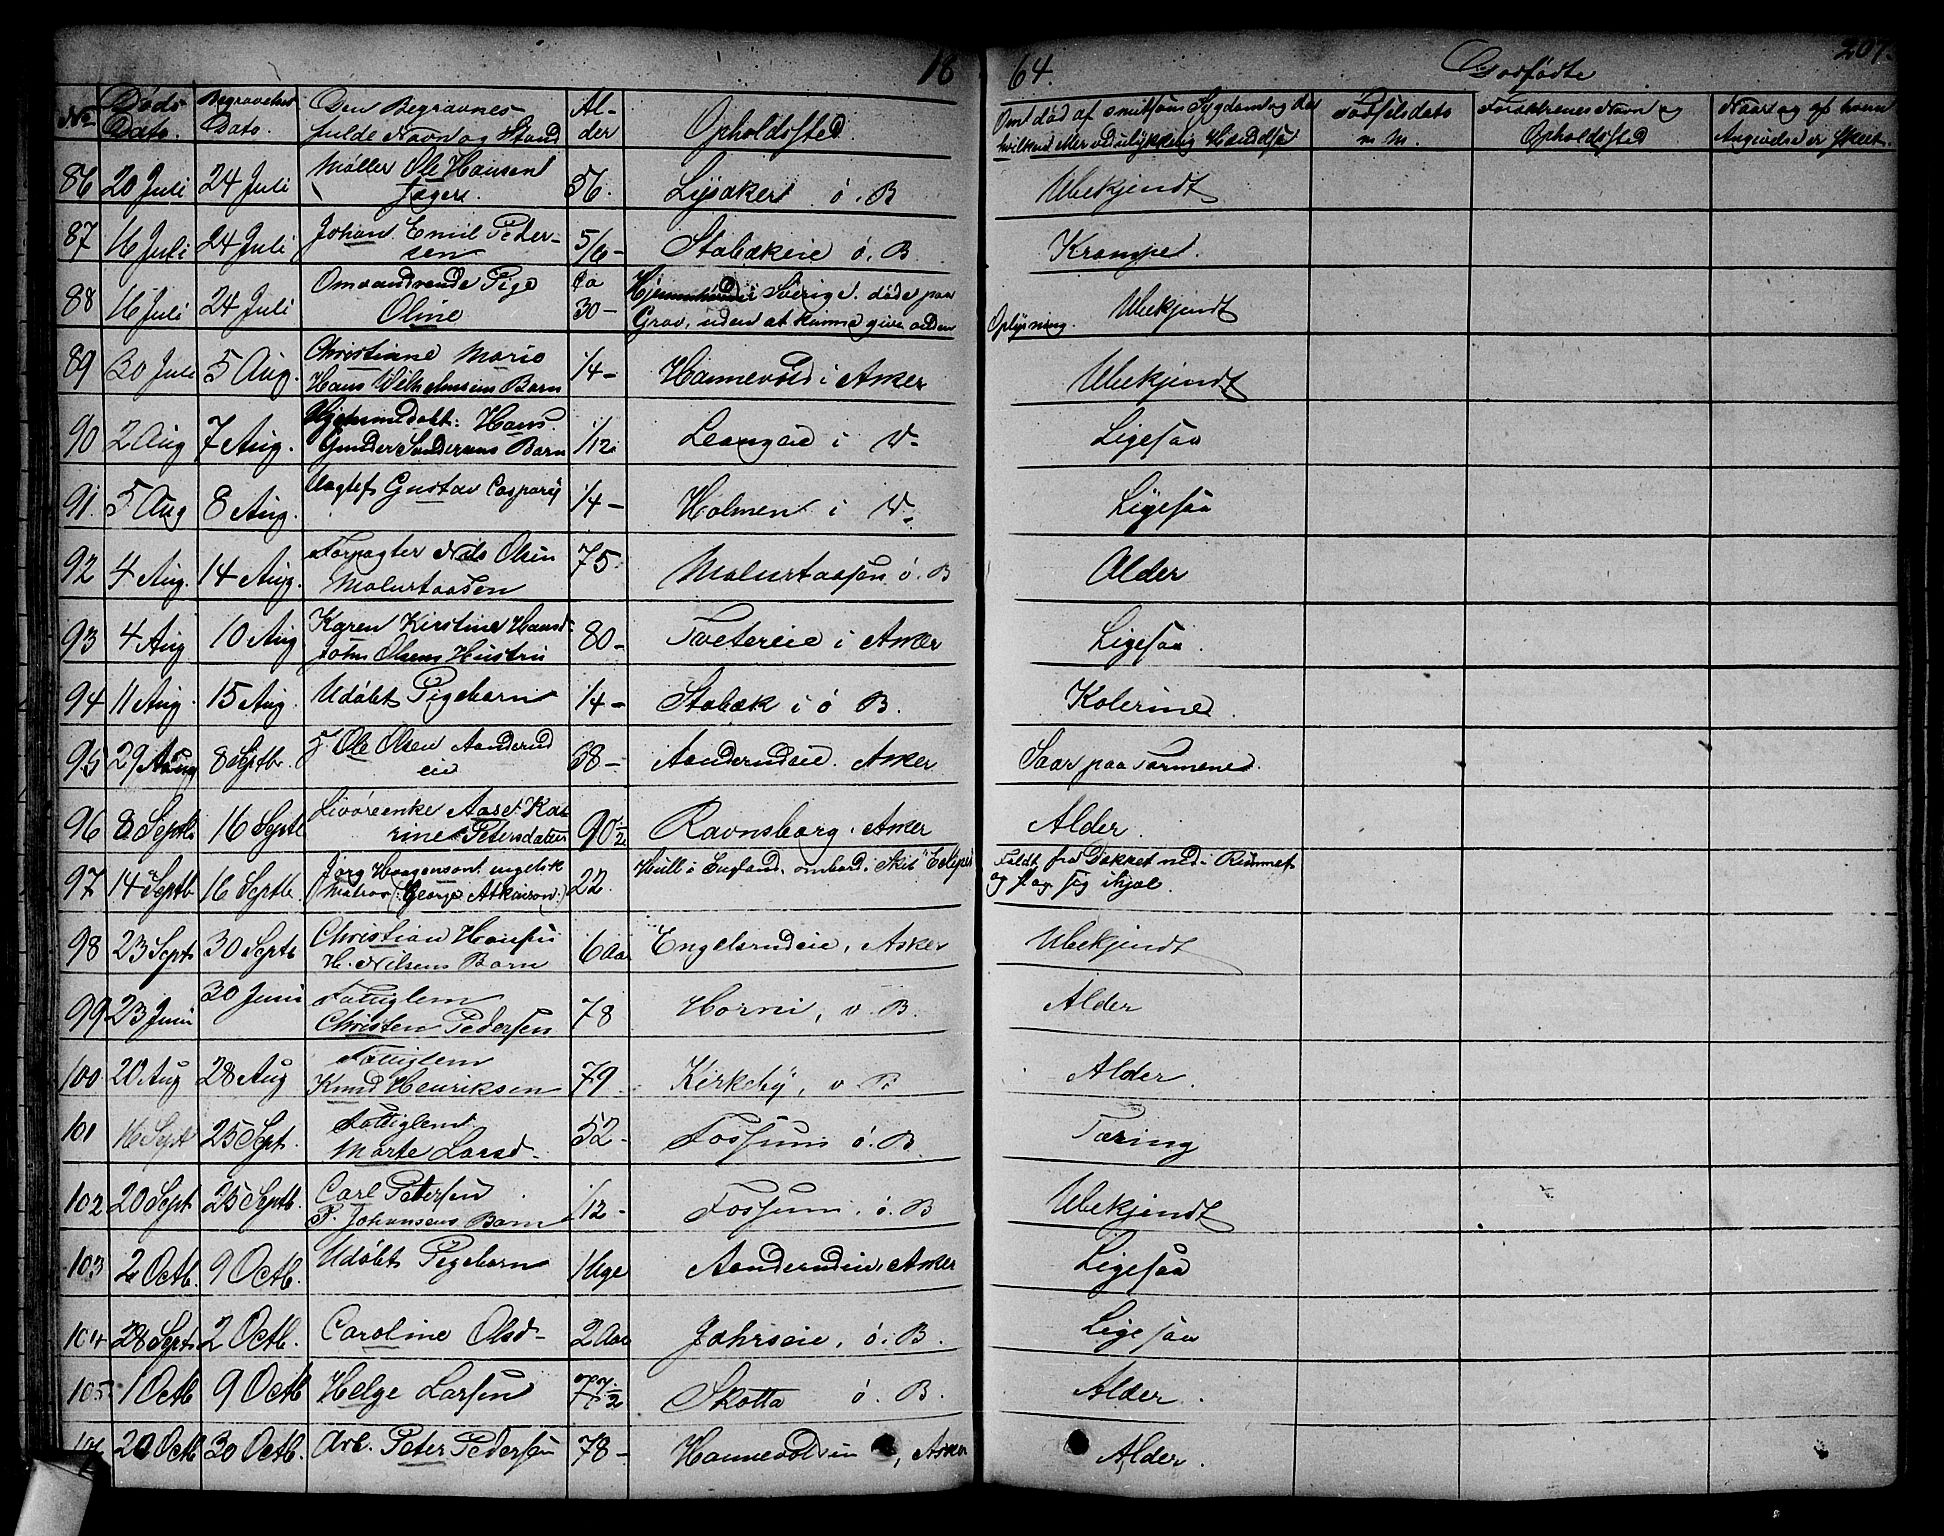 18 64. Dødfødte 207.
No Døds Dato. Begravelses Dato. Den Begravnes fulde Navn og Stand Alder Opholdssted Om død af smitsom Sygdom og da hvilken eller ved ulykkelig Hændelse Fødselsdato m M. Forældrenes Navn og Opholdssted Naar og af hvem Angivelse er skeet.
86 20 Juli 24 Juli Møller Ole Hansen Jager. 56. Lysaker ø. B Ubekjendt
87 16 Juli 24 Juli Johan Emil Petersen 5/6 - Stabækeie ø. B Krampe.
88 16 Juli 24 Juli Omvandrende Pige Oline Ca 30 - i Sverige. døde paa Grav, uden at kunne give anden Oplysning. Ubekjendt
89 30 Juli 5 Aug. Christiane Marie Hans Wilhelmsens Barn 1/4 - Hannevold i Asker Ubekjendt
90 2 Aug 7 Aug. Hjemmedøbt: Hans. Gunder Gundersens Barn 1/12 Leangeie i V- Ligesaa
91 5 Aug 8 Aug. Gustav Caspary 1/4 - Holmen i V- Ligesaa
92 4 Aug. 14 Aug. Forpagter Nils Olsen Malurtaasen 75 Malurtaasen ø. B Alder
93 4 Aug 10 Aug Karen Kirstine Hansd- John Olsens Hustru 80 - Tvetereie i Asker Ligesaa
94 11 Aug. 15 Aug. Udøbt Pigebarn 1/4 - Stabæk i ø B. Kolerine.
95 29 Aug 8 Septb. F Ole Olsen Aanderud eie 68 - Aanderudeie. Asker Saar paa Tarmene.
96 8 Septb 16 Septb Livøreenke Aase Karine Petersdatter 90 1/2 Ravnsborg. Asker Alder.
97 14 Septb 16 Septb. Jørg Haagenson engelsk Matros (: George Atkinson :) 22. Hull i England. ombord i Skib "Eclipse" Faldt fra Dækket ned i Rummet og slog sig ihjel.
98 23 Sept 30 Septb Christian Hansen H. Nilsens Barn 6 Aar Engelsrudeie, Asker Ubekjendt
99 23 Juni 30 Juni Fattiglem Christen Pedersen 78 Horni, v B. Alder
100 20 Aug 28 Aug Fattiglem Knud Henriksen 79 Kirkeby, v B Alder.
101 16 Sept 25 Sept. Fattiglem. Marte Larsd- 52 - Fossum ø. B Tæring
102 20 Sept 25 Septb. Carl Petersen P. Johansens Barn 1/12 - Fossum. ø. B Ubekjendt
103 2 Octb. 9 Octb. Udøbt Pigebarn 1 Uge Aanderudeie Asker Ligesaa
104 28 Sept 2 Octb. Caroline Olsd- 2 Aar Jahrseie, ø. B. Ligesaa
105 1 Octb 9 Octb Helge Larsen 77 1/2 Skotta ø. B. Alder.
106 20 Octb 30 Octb. Arb. Peter Pedersen 78 - Hannevoldseie, Asker Alder.